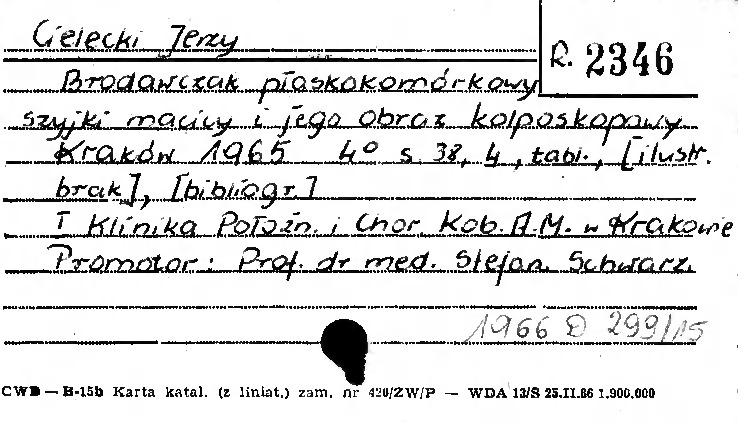 Cielecki Jerzy
R. 2346
Brodawczak płaskokomórkowy
szyjki macicy i jego obraz kolposkopowy
Kraków 1965 4° s. 38, 4, tabl., [ilustr.
brak], [bibliogr.]
I Klinika Położn. i Chor. Kob. A.M. w Krakowie
Promotor: Prof. dr med. Stefan Schwarz.
1966 D 299/15
CWD — H-15b Karta katal. (z liniat.) zam. nr 420/ZW/P — WDA 13/S 25.II.66 1.900.000